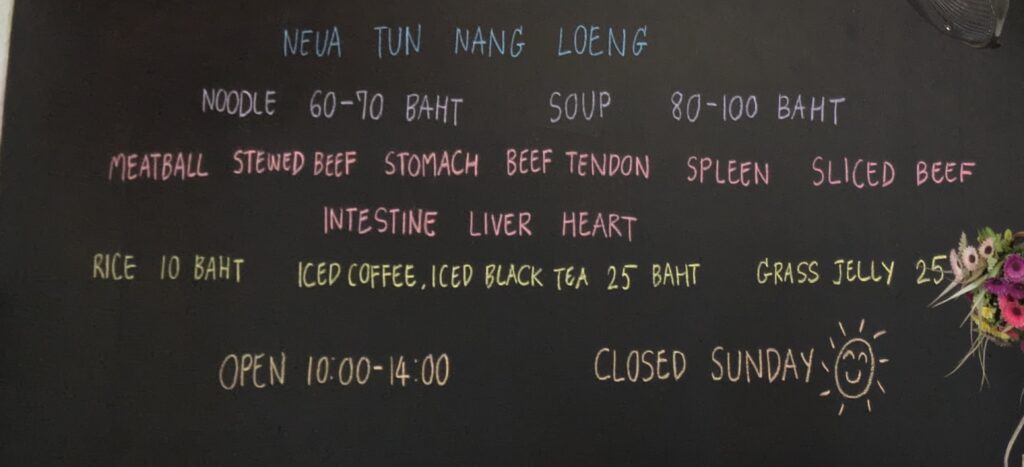 NEUA TUN NANG LOENG
NOODLE 60-70 BAHT SOUP 80-100 BAHT
MEATBALL STEWED BEEF STOMACH BEEF TENDON SPLEEN SLICED BEEF
INTESTINE LIVER HEART
RICE 10 BAHT ICED COFFEE, ICED BLACK TEA 25 BAHT GRASS JELLY 25
OPEN 10:00-14:00 CLOSED SUNDAY